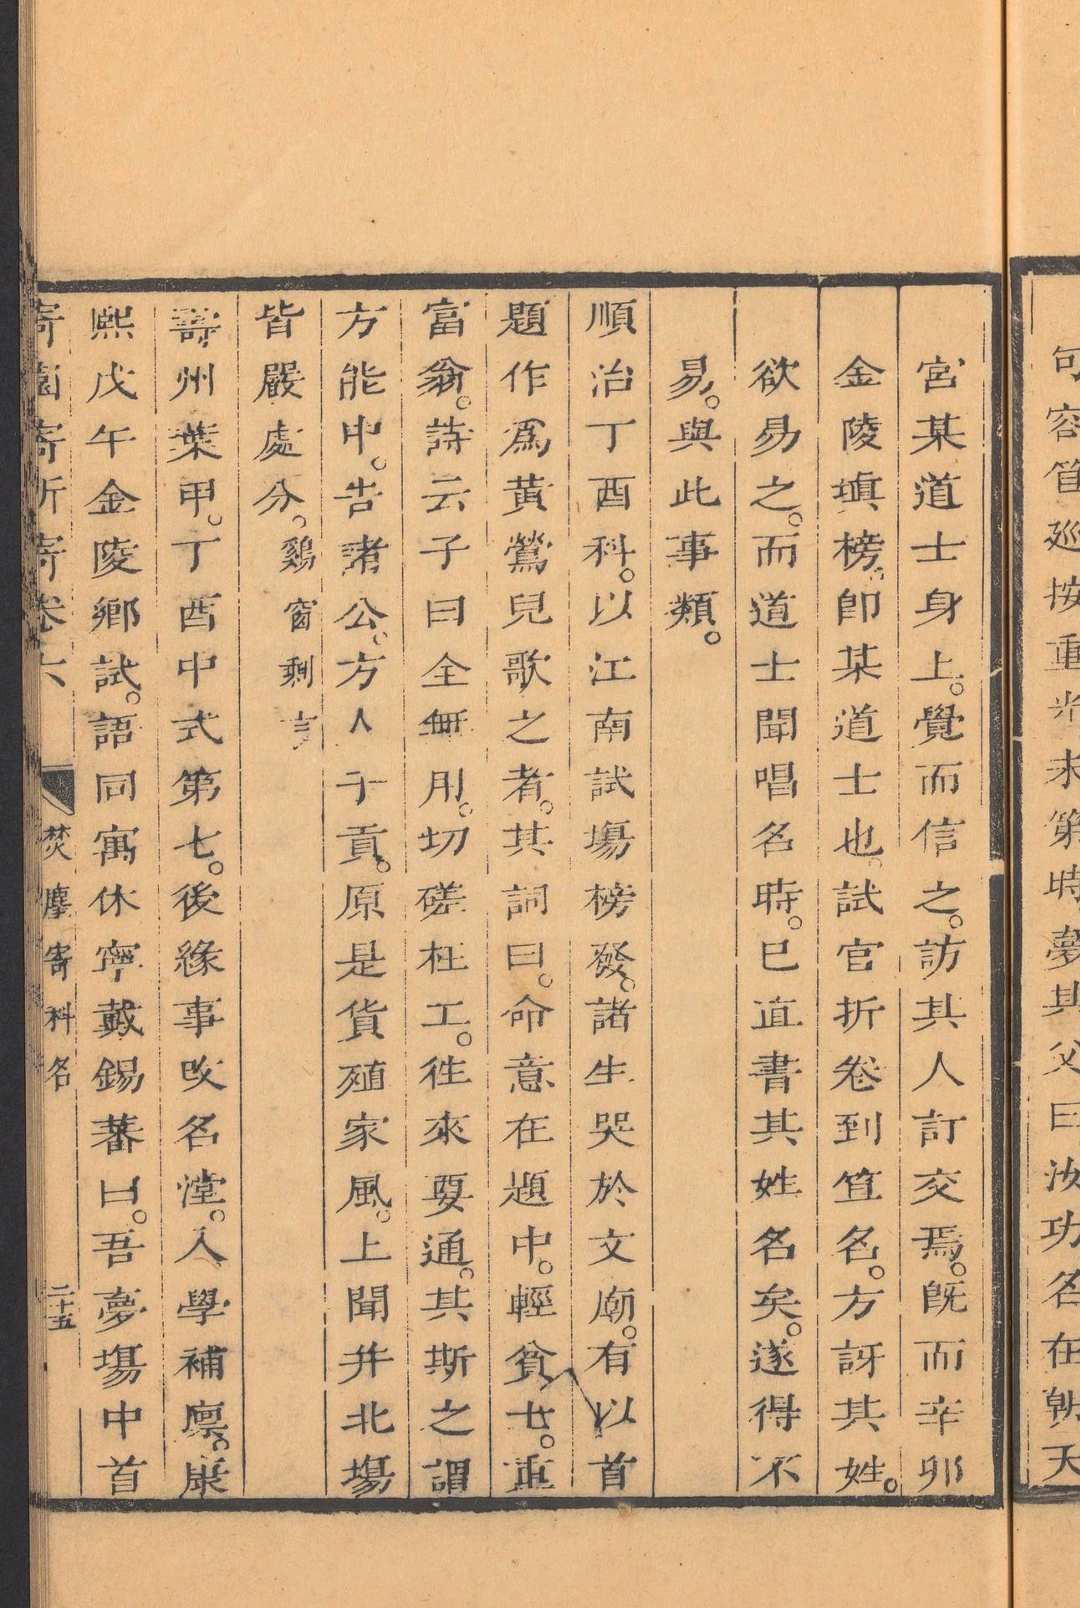 句容笪廵按重光未第時夢其父曰汝功名在朝天
宮某道士身上。覺而信之。訪其人訂交焉。旣而辛卯
金陵塡榜。卽某道士也。試官折卷到笪名。方訝其姓。
欲易之。而道士聞唱名時。已直書其姓名矣。遂得不
易。與此事類。
順治丁酉科。以江南試場榜發。諸生哭於文廟。有以首
題作爲黃鶯兒歌之者。其詞曰。命意在題中。輕貧士。重
富翁。詩云子曰全無用。切磋枉工。徃來要通。其斯之謂
方能中。告諸公。方人子貢。原是貨殖家風。上聞幷北場
皆嚴處分。鷄窗剩言
壽州葉甲。丁酉中式第七。後緣事攺名瀅。入學補廩。康
熙戊午金陵鄉試。語同寓休寧戴錫蕃曰。吾夢塲中首
寄園寄所寄卷六 焚麈寄科名 二十五